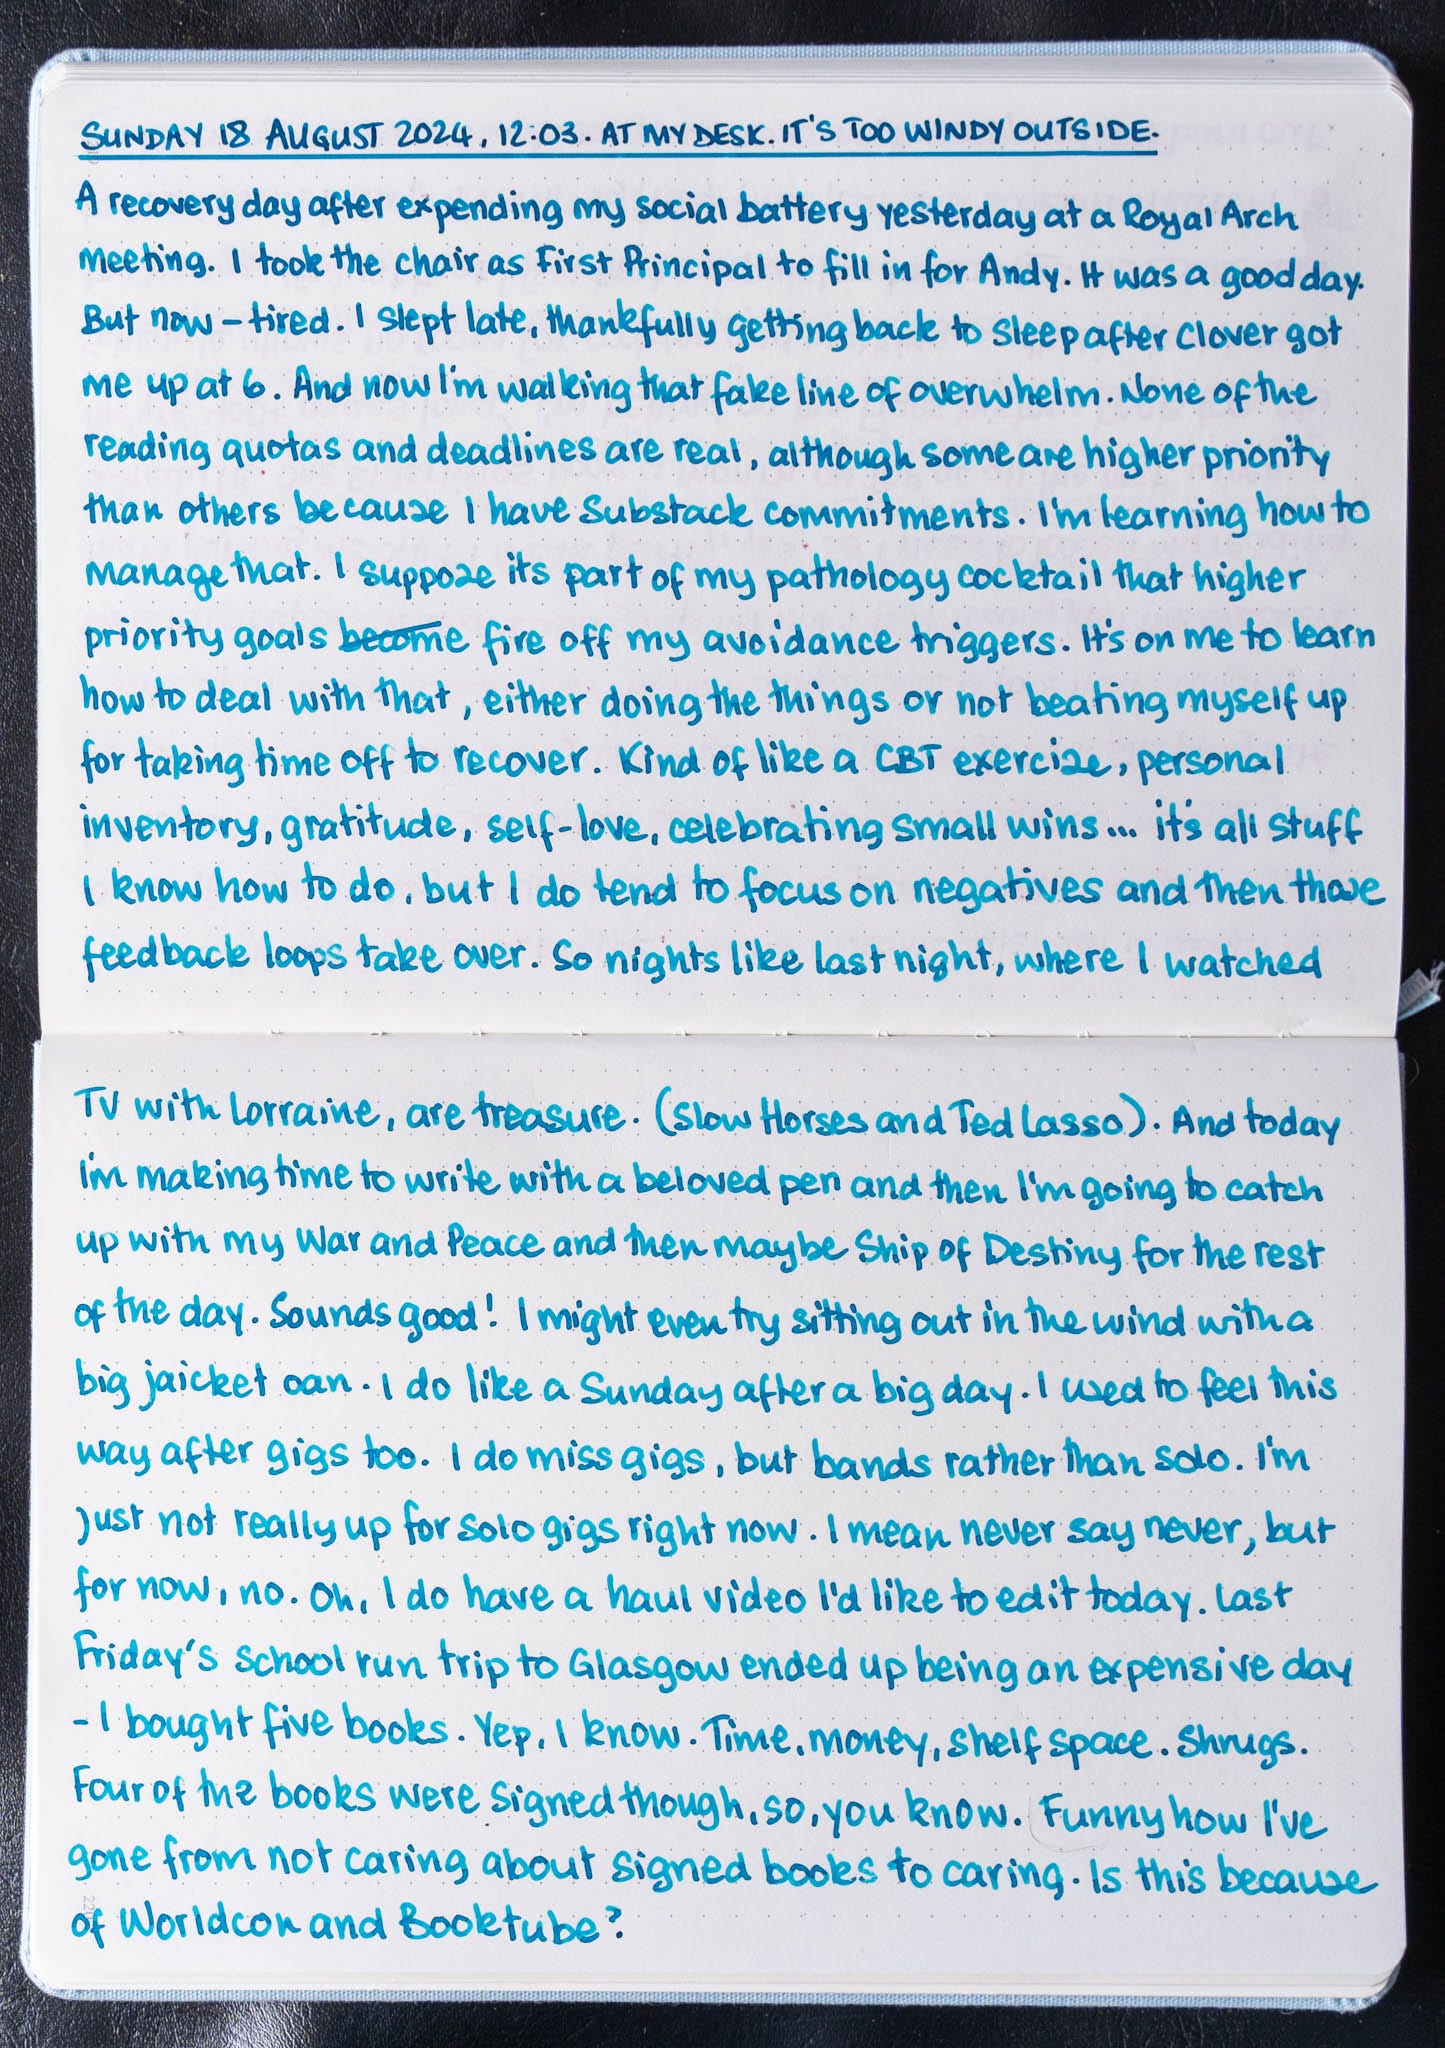 SUNDAY 18 AUGUST 2024, 12:03. AT MY DESK. IT'S TOO WINDY OUTSIDE.
A recovery day after expending my social battery yesterday at a Royal Arch
meeting. I took the chair as First Principal to fill in for Andy. It was a good day.
But now – tired. I slept late, thankfully getting back to sleep after Clover got
me up at 6. And now I'm walking that fake line of overwhelm. None of the
reading quotas and deadlines are real, although some are higher priority
than others because I have Substack commitments. I'm learning how to
manage that. I suppose its part of my pathology cocktail that higher
priority goals become fire off my avoidance triggers. It's on me to learn
how to deal with that, either doing the things or not beating myself up
for taking time off to recover. Kind of like a CBT exercise, personal
inventory, gratitude, self-love, celebrating small wins... it's all stuff
I know how to do, but I do tend to focus on negatives and then those
feedback loops take over. So nights like last night, where I watched
TV with Lorraine, are treasure. (Slow Horses and Ted Lasso). And today
I'm making time to write with a beloved pen and then I'm going to catch
up with my War and Peace and then maybe Ship of Destiny for the rest
of the day. Sounds good! I might even try sitting out in the wind with a
big jaicket oan. I do like a Sunday after a big day. I used to feel this
way after gigs too. I do miss gigs, but bands rather than solo. I'm
just not really up for solo gigs right now. I mean never say never, but
for now, no. Oh, I do have a haul video I'd like to edit today. Last
Friday's school run trip to Glasgow ended up being an expensive day
- I bought five books. Yep, I know. Time, money, shelf space. Shrugs.
Four of the books were signed though, so, you know. Funny how I've
gone from not caring about signed books to caring. Is this because
of Worldcon and Booktube?